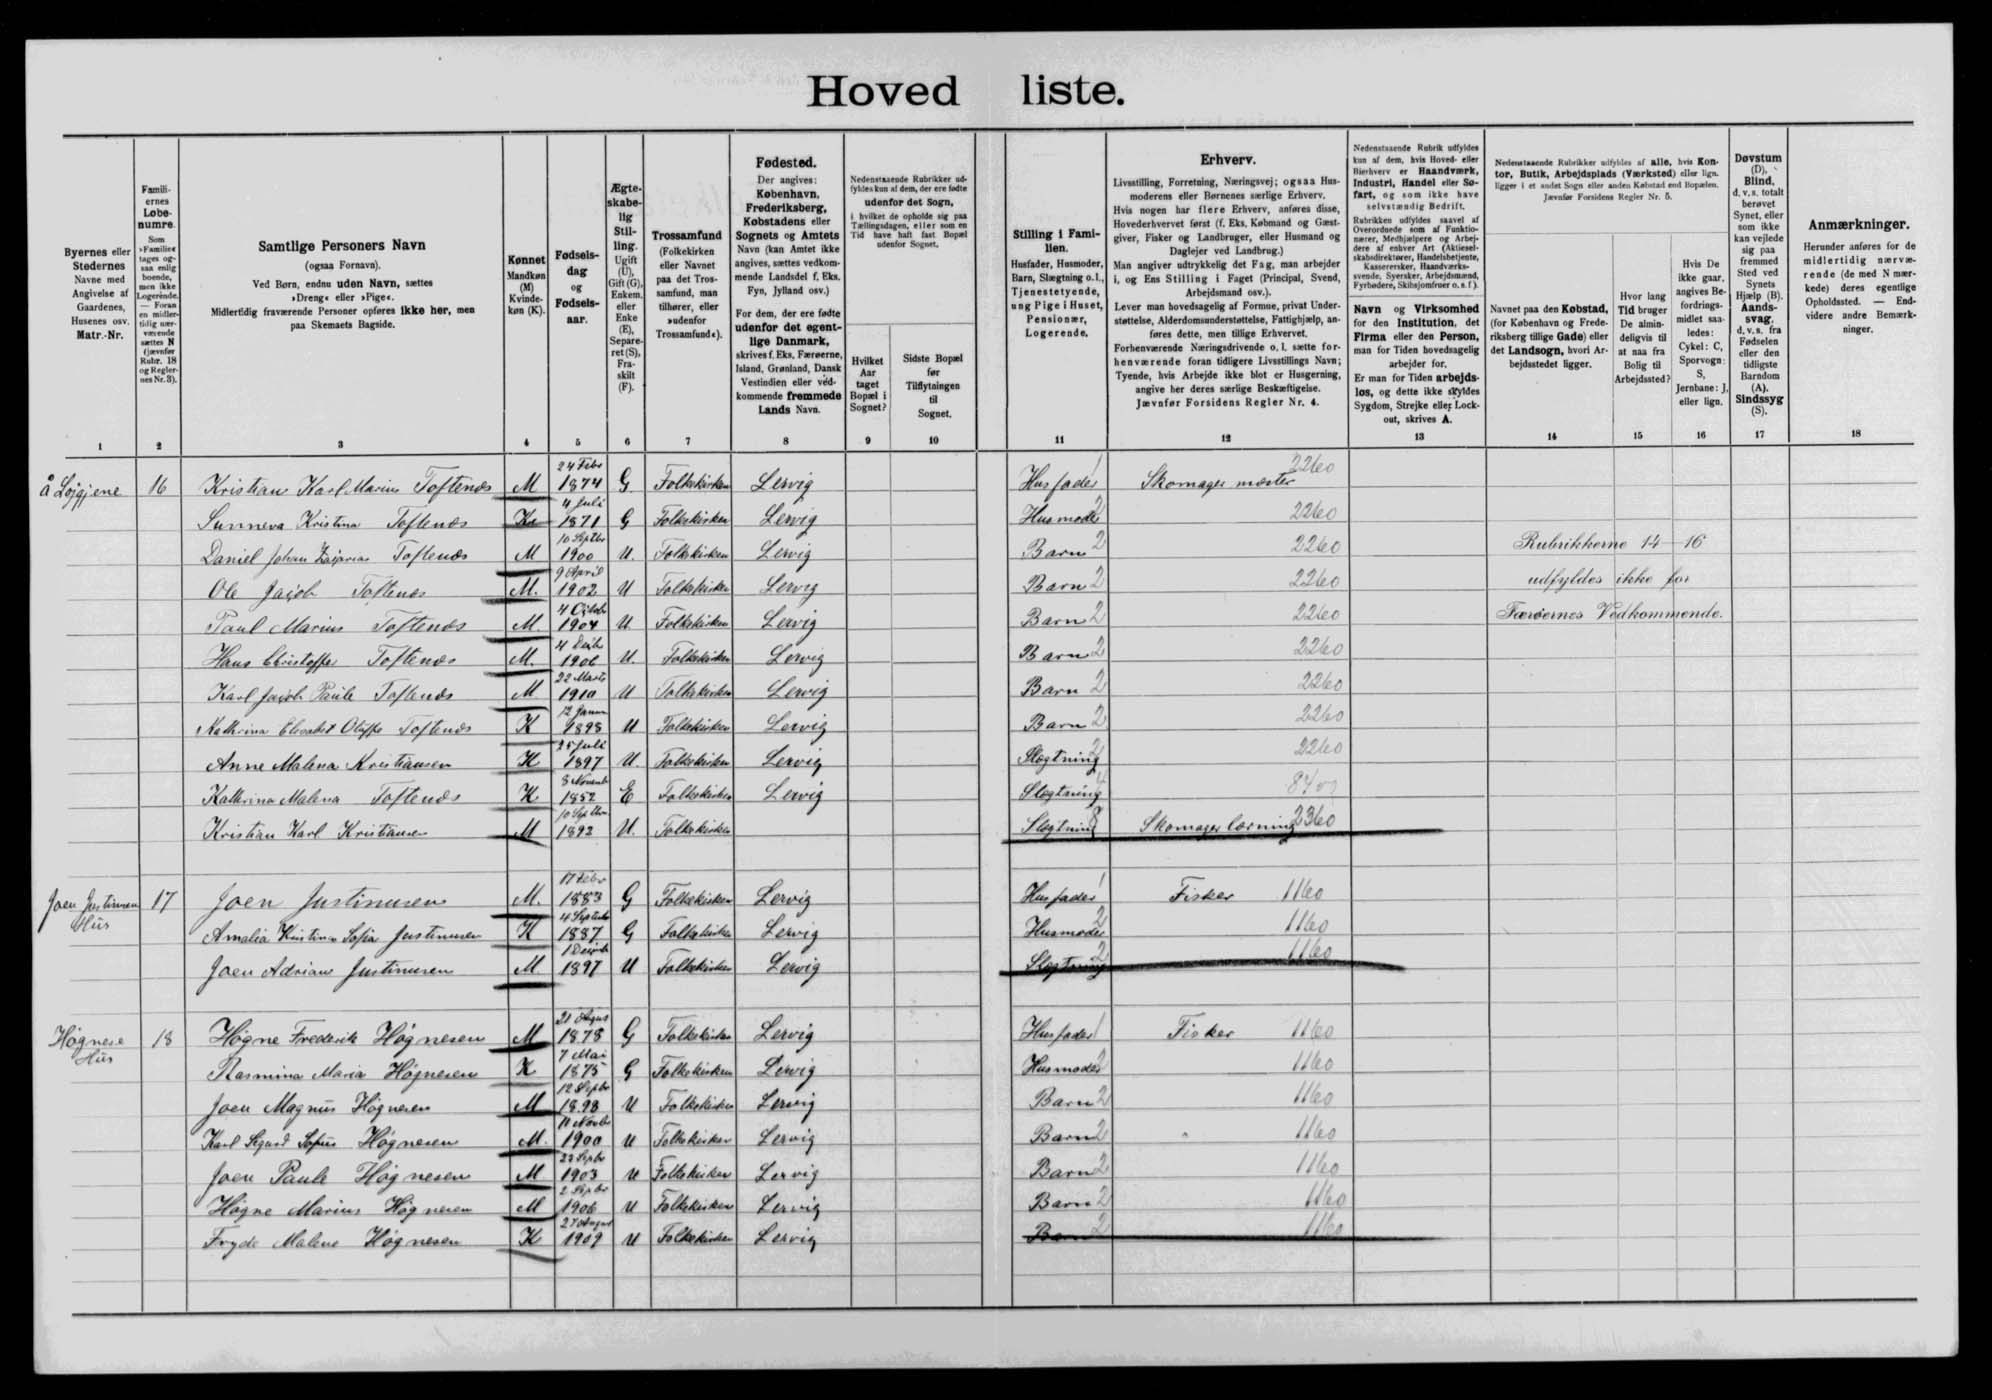 Hoved liste.
Byernes eller Stedernes Navne med Angivelse af Gaardenes, Husenes osv. Matr.-Nr.
Familiernes Løbenumre. Som »Familie« tages ogsaa enlig boende, men ikke Logerende. — Foran en midlertidig nærværende sættes N (jævnfør Rubr. 18 og Reglernes Nr. 3).
Samtlige Personers Navn (ogsaa Fornavn). Ved Børn, endnu uden Navn, sættes »Dreng« eller »Pige«. Midlertidig fraværende Personer opføres ikke her, men paa Skemaets Bagside.
Kønnet Mandkøn (M) Kvindekøn (K).
Fødselsdag og Fødselsaar.
Ægteskabelig Stilling. Ugift (U), Gift (G), Enkem. eller Enke (E), Separeret (S), Fraskilt (F).
Trossamfund (Folkekirken eller Navnet paa det Trossamfund, man tilhører, eller »udenfor Trossamfund«).
Fødested. Der angives: København, Frederiksberg, Købstadens eller Sognets og Amtets Navn (kan Amtet ikke angives, sættes vedkommende Landsdel f. Eks. Fyn, Jylland osv.) For dem, der ere fødte udenfor det egentlige Danmark, skrives f. Eks. Færøerne, Island, Grønland, Dansk Vestindien eller vedkommende fremmede Lands Navn.
Nedenstaaende Rubrikker udfyldes kun af dem, der ere fødte udenfor det Sogn, i hvilket de opholde sig paa Tællingsdagen, eller som en Tid have haft fast Bopæl udenfor Sognet.
Hvilket Aar taget Bopæl i Sognet?
Sidste Bopæl før Tilflytningen til Sognet.
Stilling i Familien. Husfader, Husmoder, Barn, Slægtning o. l., Tjenestetyende, ung Pige i Huset, Pensionær, Logerende.
Erhverv. Livsstilling, Forretning, Næringsvej; ogsaa Husmoderens eller Børnenes særlige Erhverv. Hvis nogen har flere Erhverv, anføres disse, Hovederhvervet først (f. Eks. Købmand og Gæstgiver, Fisker og Landbruger, eller Husmand og Daglejer ved Landbrug.) Man angiver udtrykkelig det Fag, man arbejder i, og Ens Stilling i Faget (Principal, Svend, Arbejdsmand osv.). Lever man hovedsagelig af Formue, privat Understøttelse, Alderdomsunderstøttelse, Fattighjælp, anføres dette, men tillige Erhvervet. Forhenværende Næringsdrivende o. l. sætte forhenværende foran tidligere Livsstillings Navn; Tyende, hvis Arbejde ikke blot er Husgerning, angive her deres særlige Beskæftigelse. Jævnfør Forsidens Regler Nr. 4.
Nedenstaaende Rubrik udfyldes kun af dem, hvis Hoved- eller Bierhverv er Haandværk, Industri, Handel eller Søfart, og som ikke have selvstændig Bedrift. Rubrikken udfyldes saavel af Overordnede som af Funktionærer, Medhjælpere og Arbejdere af enhver Art (Aktieselskabsdirektører, Handelsbetjente, Kasserersker, Haandværkssvende, Syersker, Arbejdsmænd, Fyrbødere, Skibsjomfruer o. s. f.).
Navn og Virksomhed for den Institution, det Firma eller den Person, man for Tiden hovedsagelig arbejder for. Er man for Tiden arbejdsløs, og dette ikke skyldes Sygdom, Strejke eller Lockout, skrives A.
Nedenstaaende Rubrikker udfyldes af alle, hvis Kontor, Butik, Arbejdsplads (Værksted) eller lign. ligger i et andet Sogn eller anden Købstad end Bopælen. Jævnfør Forsidens Regler Nr. 5.
Navnet paa den Købstad, (for København og Frederiksberg tillige Gade) eller det Landsogn, hvori Arbejdsstedet ligger.
Hvor lang Tid bruger De almindeligvis til at naa fra Bolig til Arbejdssted?
Hvis De ikke gaar, angives Befordringsmidlet saaledes: Cykel: C, Sporvogn: S, Jernbane: J, eller lign.
Døvstum (D), Blind, d. v. s. totalt berøvet Synet, eller som ikke kan vejlede sig paa fremmed Sted ved Synets Hjælp (B). Aandssvag. d. v. s. fra Fødselen eller den tidligste Barndom (A). Sindssyg (S).
Anmærkninger. Herunder anføres for de midlertidig nærværende (de med N mærkede) deres egentlige Opholdssted. — Endvidere andre Bemærkninger.
1 2 3 4 5 6 7 8 9 10 11 12 13 14 15 16 17 18
å Lojgjene 16 Kristian Karl Marius Toftenæs M 24 Febr 1874 G Folkekirken Lervig Husfader 1 Skomager mester 2260
Sunneva Kristina Toftenæs K 4 Juli 1871 G Folkekirken Lervig Husmoder 2 2260
Daniel Johan Toftenæs M 10 Septbr 1900 U. Folkekirken Lervig Barn 2 2260 Rubrikkerne 14–16
Ole Jacob Toftenæs M. 9 April 1902 U Folkekirken Lervig Barn 2 2260 udfyldes ikke for
Paul Marius Toftenæs M. 4 Octob 1904 U. Folkekirken Lervig Barn 2 2260 Færøernes Vedkommende.
Hans Christoffer Toftenæs M. 4 Decbr 1906 U. Folkekirken Lervig Barn 2 2260
Karl Jacob Paule Toftenæs M 22 Marts 1910 U Folkekirken Lervig Barn 2 2260
Kathrina Elesabet Toftenæs K 12 Janua 1898 U Folkekirken Lervig Barn 2 2260
Anne Malena Kristiansen K 25 Juli 1897 U. Folkekirken Lervig Slægtning 2 2260
Kathrina Malena Toftenæs K 8 Novemb 1852 E Folkekirken Lervig Slægtning 4
Kristian Karl Kristiansen M 10 Septbr 1892 U. Folkekirken Slægtning Skomager lærning 2360
Joen Justinusen Hus 17 Joen Justinusen M. 17 Febr 1883 G Folkekirken Lervig Husfader 1 Fisker 1160
Amalia Kristina Sofia Justinusen K 4 Septemb 1887 G Folkekirken Lervig Husmoder 2 1160
Joen Adrian Justinusen M 1 Decemb 1897 U Folkekirken Lervig Slægtning 2 1160
Høgnese Hus 18 Høgne Frederik Høgnesen M 21 August 1878 G Folkekirken Lervig Husfader 1 Fisker 1160
Rasmina Maria Høgnesen K 7 Mai 1875 G Folkekirken Lervig Husmoder 2 1160
Joen Magnus Høgnesen M 12 Septbr 1898 U Folkekirken Lervig Barn 2 1160
Karl Sigurd Sofus Høgnesen M. 11 Novb 1900 U Folkekirken Lervig Barn 2 " 1160
Joen Paule Høgnesen M 22 Septbr 1903 U Folkekirken Lervig Barn 2 1160
Høgne Marius Høgnesen M 2 Septbr 1906 U Folkekirken Lervig Barn 2 1160
Fryda Malene Høgnesen K 27 August 1909 U Folkekirken Lervig Barn 2 1160